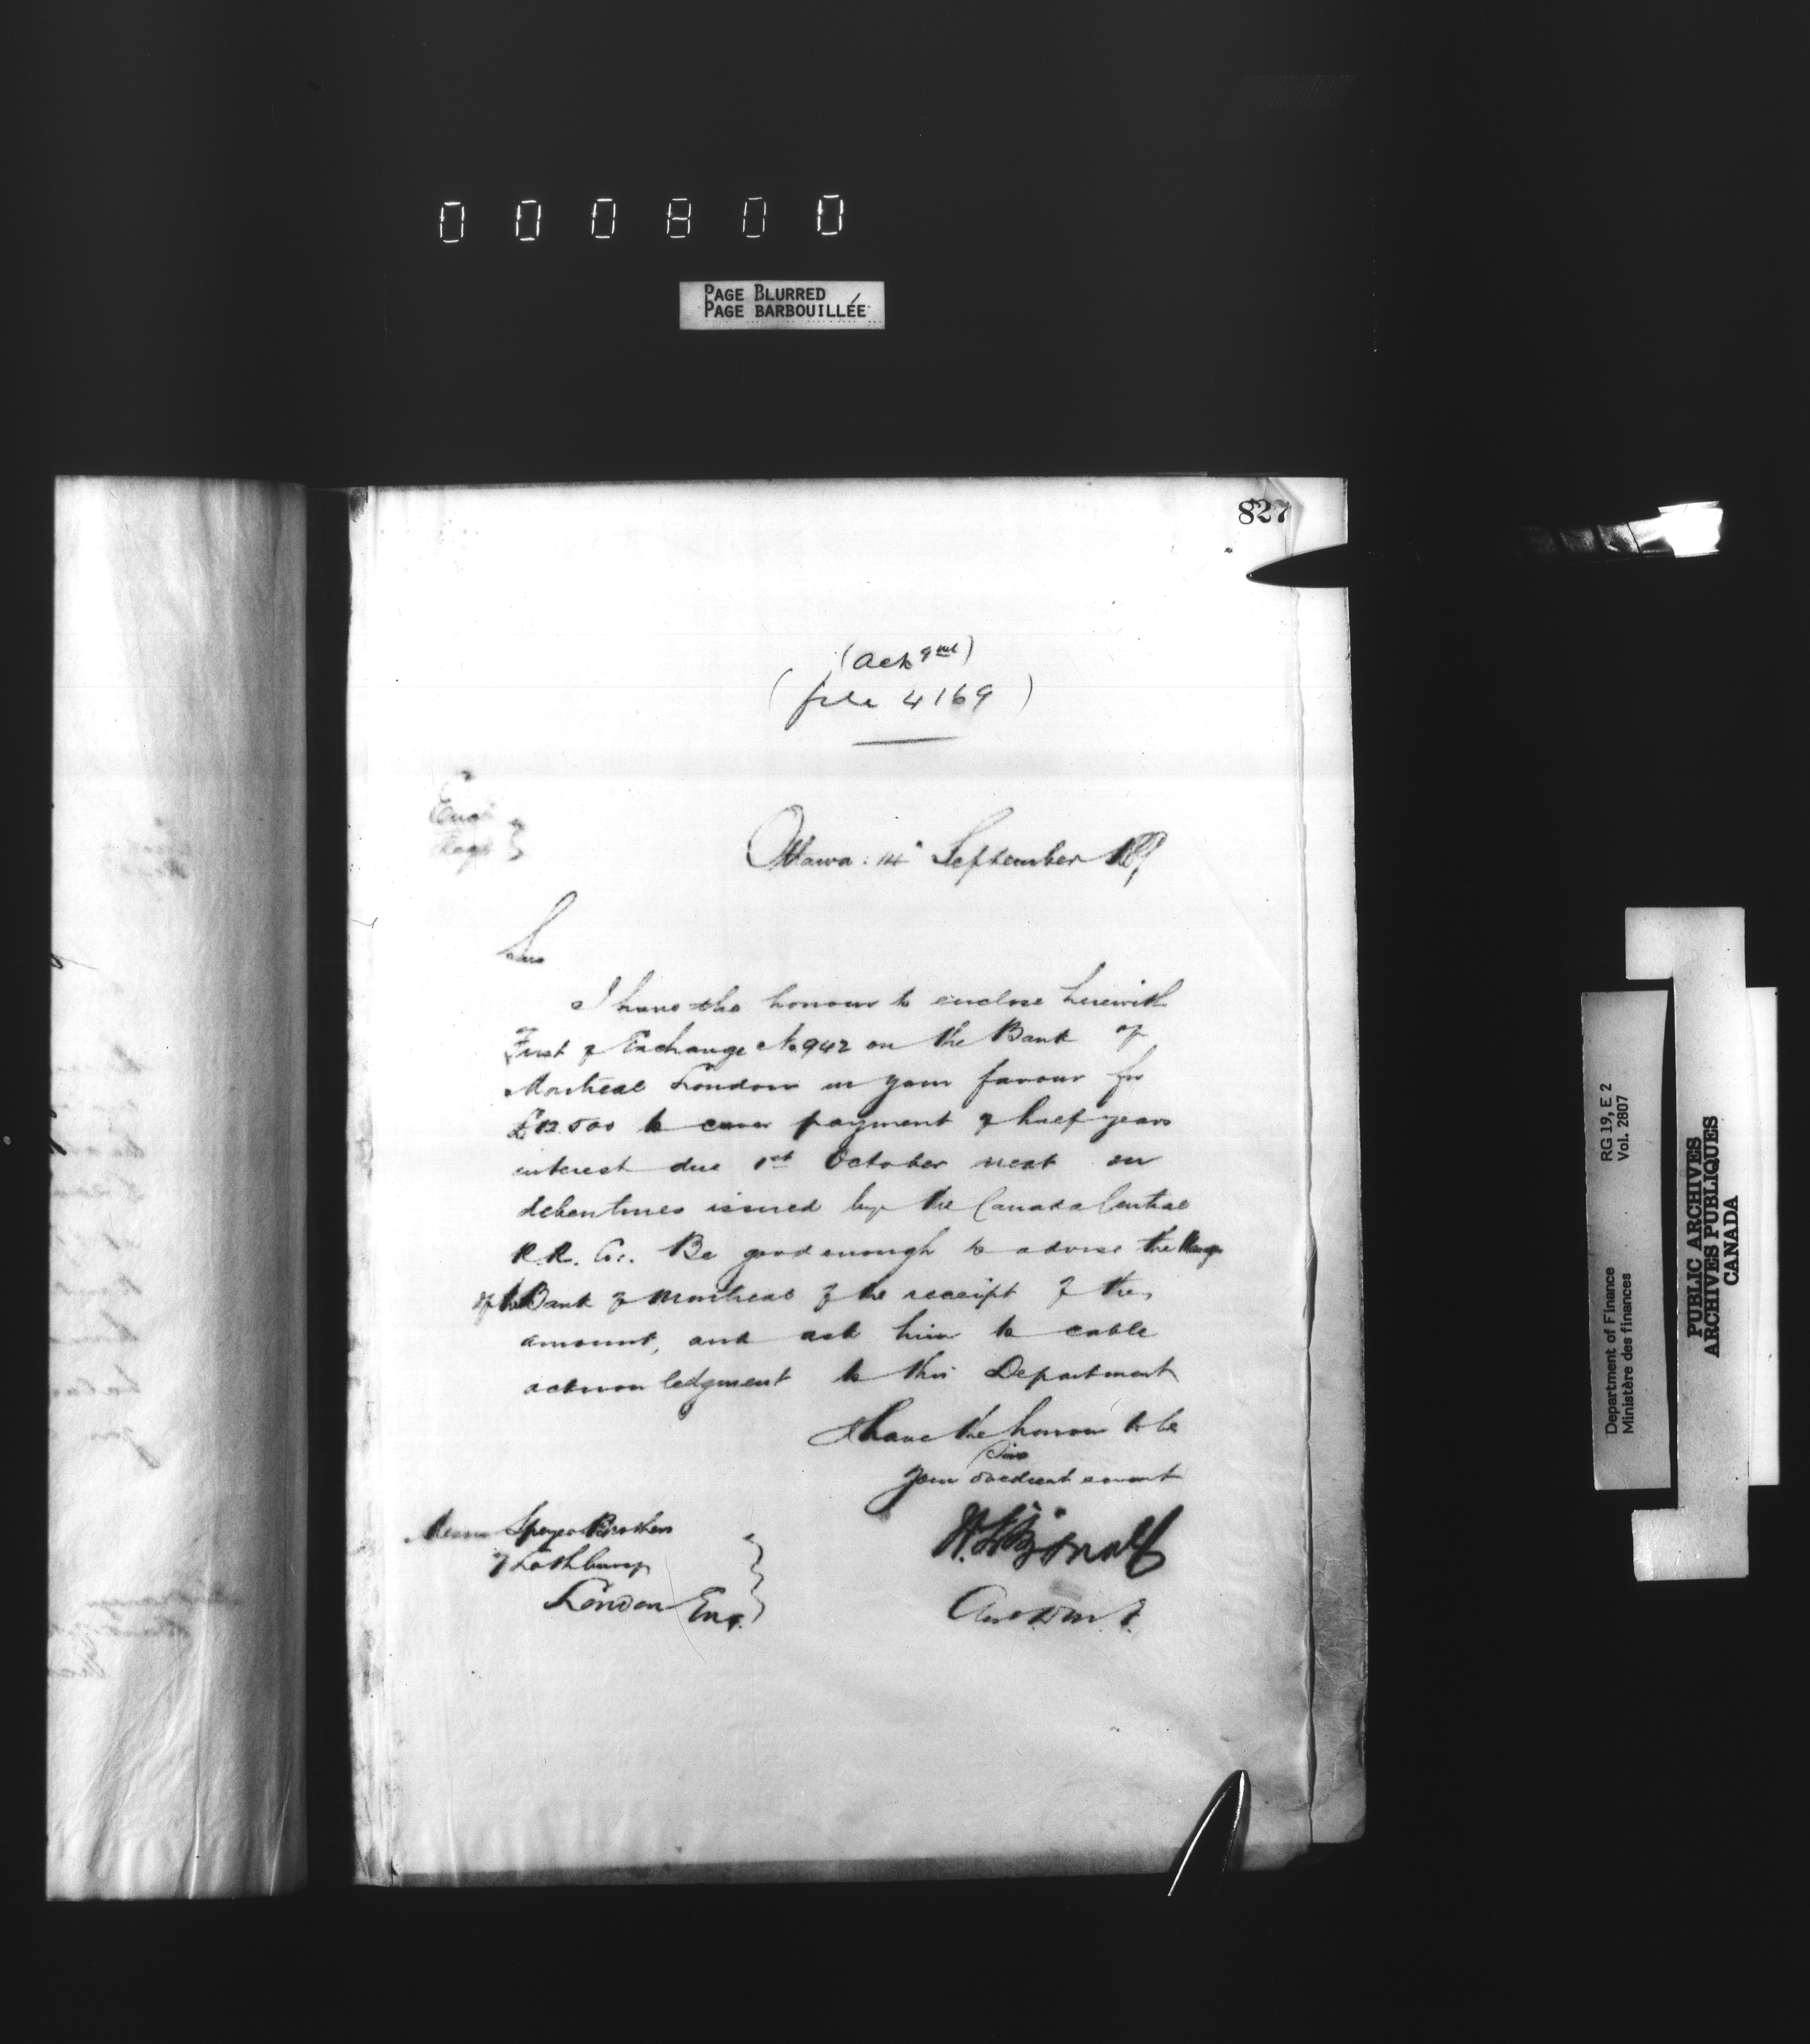 000800
PAGE BLURRED
PAGE BARBOUILLÉE
827
(Ack 9
(file 4169)
Ottawa: 14" September
Sirs
I have the honour to enclose herewith
First of Exchange No 942 on the Bank of
Montreal London in your favour for
£12.500 to cover payment of half years
interest due 1st October next on
debentures issued by the Canada Central
R.R. Co. Be good enough to advise the Manager
of the Bank of Montreal of the receipt of the
amount, and ask him to cable
acknowledgment to this Department
I have the honour to be
Sirs
your obedient servant
Messrs Speyer Brothers
7 Lothbury
London Eng.
RG 19, E 2
Vol. 2807
Department of Finance
Ministère des finances
PUBLIC ARCHIVES
ARCHIVES PUBLIQUES
CANADA